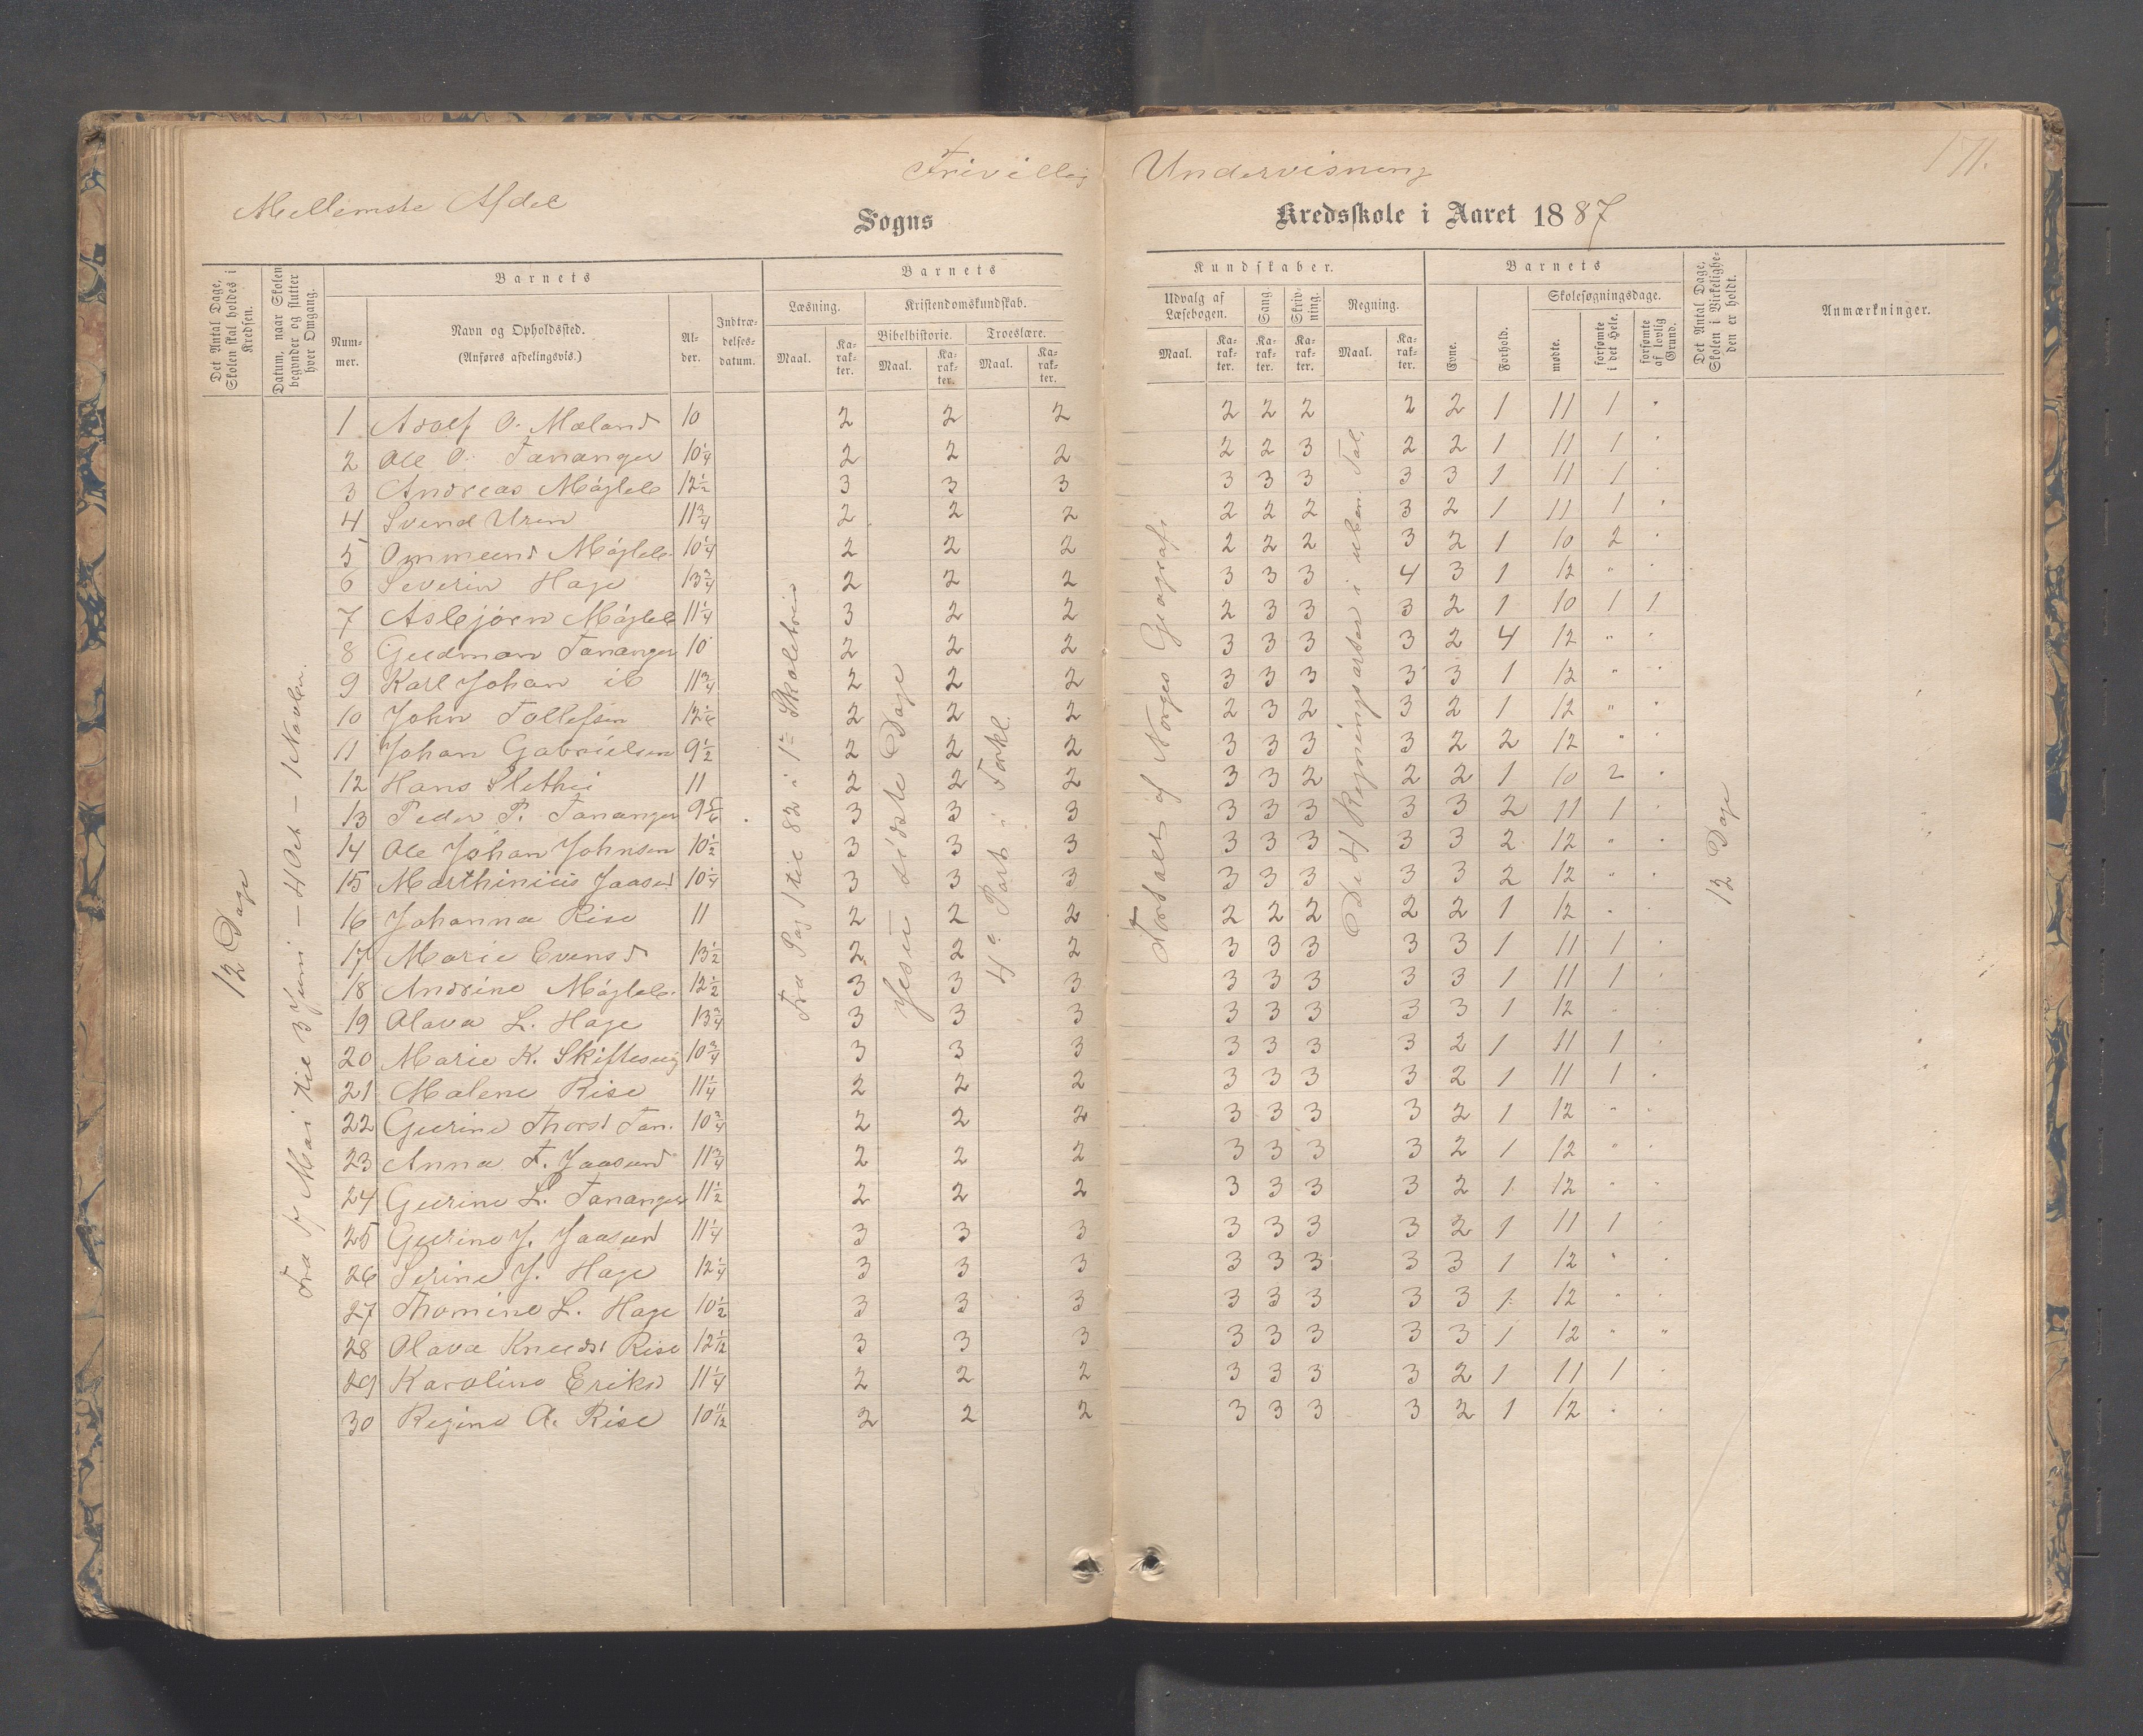 Frivillig Undervisning
171.
Mellemste Afdel
Sogns Kredsskole i Aaret 1887
Det Antal Dage, Skolen skal holdes i Kredsen.
Datum, naar Skolen begynder og slutter hver Omgang.
Barnets
Nummer.
Navn og Opholdssted.
(Anføres afdelingsvis.)
Alder.
Indtrædelsesdatum.
Barnets
Læsning.
Maal.
Karakter.
Kristendomskundskab.
Bibelhistorie.
Maal.
Karakter.
Troeslære.
Maal.
Karakter.
Kundskaber.
Udvalg af Læsebogen.
Maal.
Karakter.
Sang.
Karakter.
Skrivning.
Karakter.
Regning.
Maal.
Karakter.
Barnets
Evne.
Forhold.
Skolesøgningsdage.
mødte.
forsømte i det Hele.
forsømte af lovlig Grund.
Det Antal Dage, Skolen i Virkeligheden er holdt.
Anmærkninger.
12 Dage
Fra 17 Mai til 3 Juni - 4 Oct - 1 Novbr.
Fra Pag 1 til 82 i 1ste Skoletrin
Jesu sidste Dage
4de Part i Forkl.
Fortalt af Norges Geografi
De 4 Regningsarter i uben. Tal.
12 Dage
1 Adolf O. Mæland 10 2 2 2 2 2 2 2 2 1 11 1 "
2 Ole O. Tananger 10 1/4 2 2 2 2 2 3 2 2 1 11 1 "
3 Andreas Møgleb 12 1/2 3 3 3 3 3 3 3 3 1 11 1 "
4 Svend Uren 11 3/4 2 2 2 2 2 2 3 2 1 11 1 "
5 Ommund Møgleb 10 1/4 2 2 2 2 2 2 3 2 1 10 2 "
6 Severin Hage 13 3/4 2 2 2 3 3 3 4 3 1 12 " "
7 Asbjørn Møgleb 11 1/4 3 2 2 2 3 3 3 2 1 10 1 1
8 Gudman Tananger 10 2 2 2 3 3 3 3 2 4 12 " "
9 Karl Johan ib 11 3/4 2 2 2 3 3 3 3 3 1 12 " "
10 John Tollefsen 12 1/4 2 2 2 2 3 2 3 2 1 12 " "
11 Johan Gabrielsen 9 1/2 2 2 2 3 3 3 3 2 2 12 " "
12 Hans Slethei 11 2 2 2 3 3 2 2 2 1 10 2 "
13 Peder P. Tananger 9 5/6 3 3 3 3 3 3 3 3 2 11 1 "
14 Ole Johan Johnsen 10 1/2 3 3 3 3 3 3 3 3 2 12 " "
15 Marthinius Jaasund 10 1/4 3 3 3 3 3 3 3 3 2 12 " "
16 Johanna Rise 11 2 2 2 2 2 2 2 2 1 12 " "
17 Marie Evensd 13 1/2 2 2 2 3 3 3 3 3 1 11 1 "
18 Andrine Møgleb. 12 1/2 3 3 3 3 3 3 3 3 1 11 1 "
19 Olava L. Hage 13 3/4 3 3 3 3 3 3 3 3 1 12 " "
20 Marie K. Skiftesvig 10 3/4 3 3 3 3 3 3 3 2 1 11 1 "
21 Malene Rise 11 1/4 2 2 2 3 3 3 3 2 1 11 1 "
22 Gurine Thorsd Tan. 10 3/4 2 2 2 3 3 3 3 2 1 12 " "
23 Anna T. Jaasund 11 3/4 2 2 2 3 3 3 3 2 1 12 " "
24 Gurine L. Tananger 11 1/2 2 2 2 3 3 3 3 2 1 12 " "
25 Gurine J. Jaasund 11 1/4 3 3 3 3 3 3 3 2 1 11 1 "
26 Serine J. Hage 12 1/4 3 3 3 3 3 3 3 3 1 12 " "
27 Thomine L. Hage 10 1/2 3 3 3 3 3 3 3 3 1 12 " "
28 Olava Knudsd Rise 12 1/12 3 3 3 3 3 3 3 3 1 12 " "
29 Karoline Eriksd 11 1/4 2 2 2 3 3 3 3 2 1 11 1 "
30 Regine A. Rise 10 11/12 2 2 2 3 3 3 3 2 1 12 " "